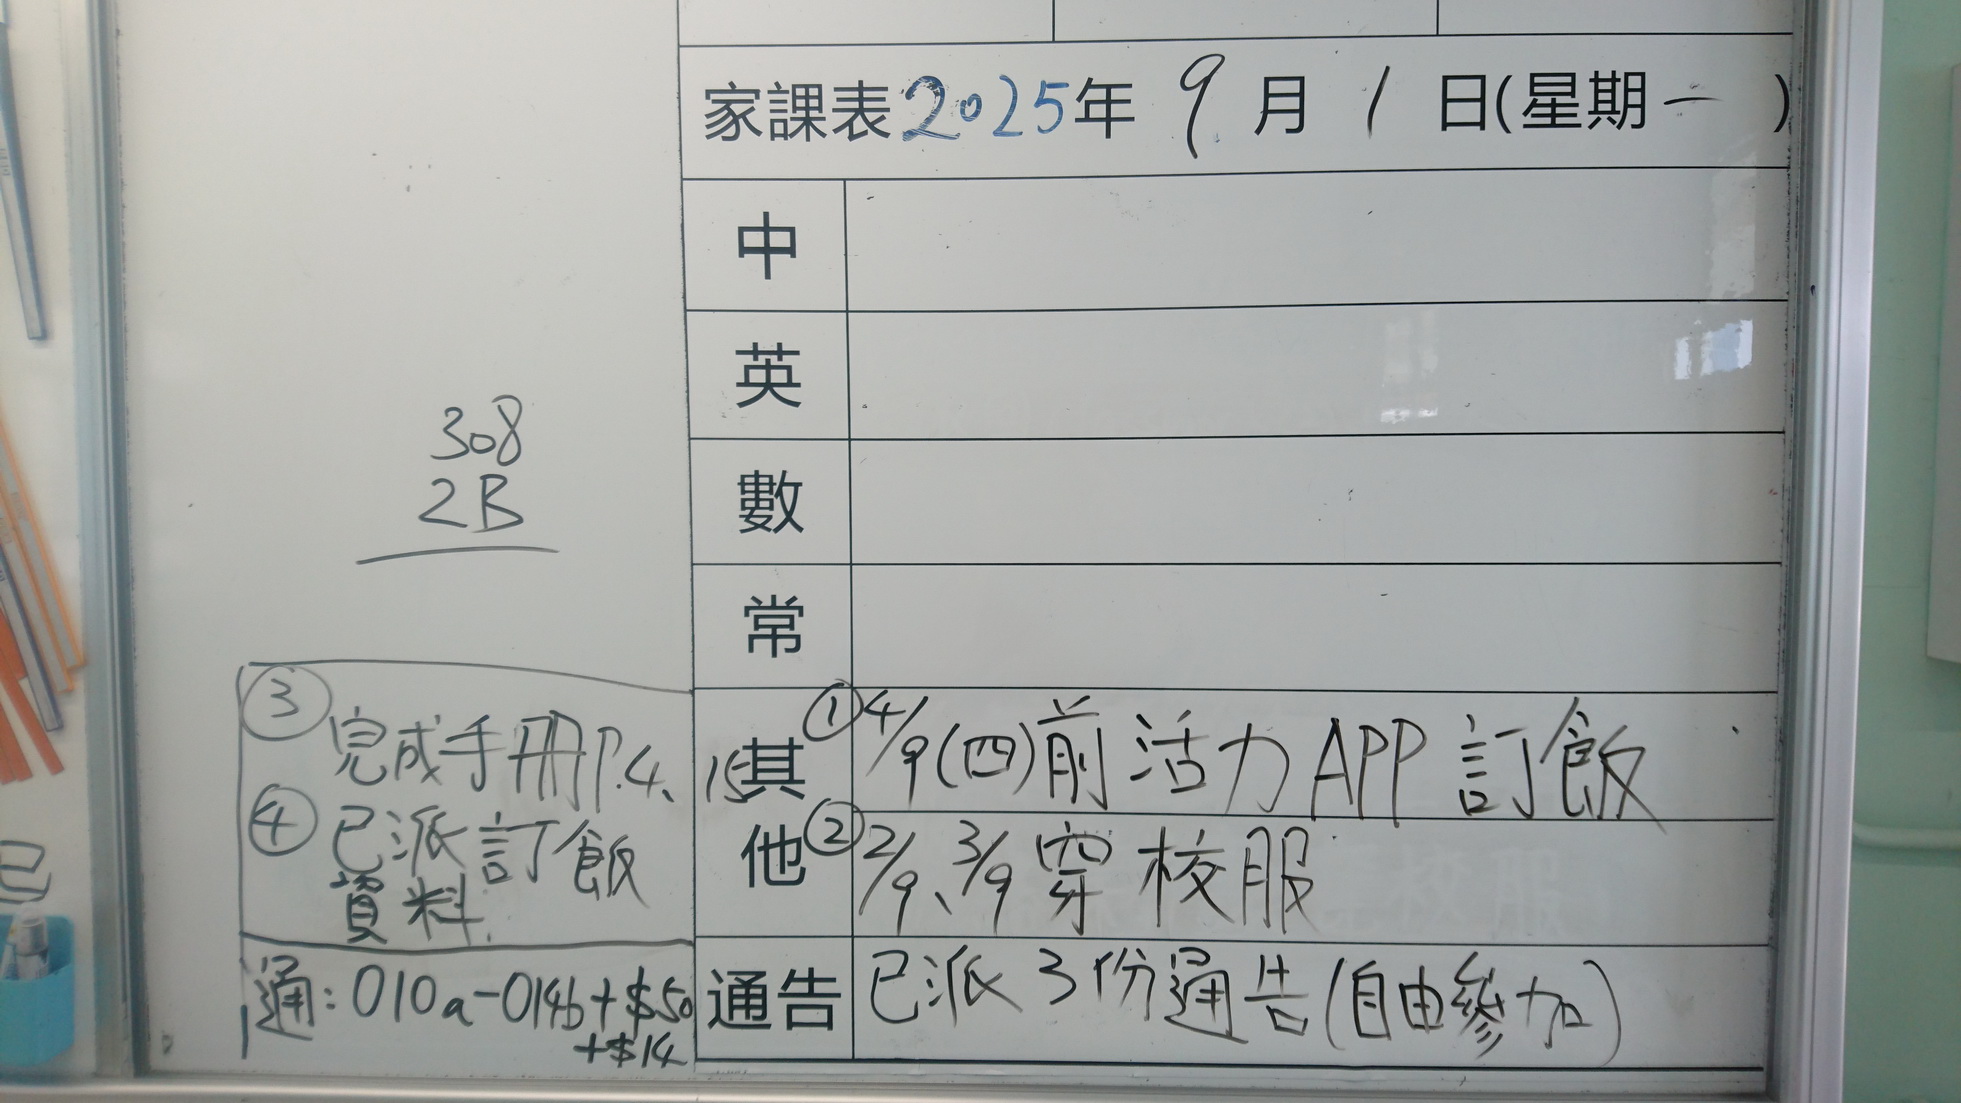 家課表2025年 9 月 1 日(星期一)
中
英
數
常
其他
①4/9(四)前活力APP訂飯
②2/9、3/9穿校服
通告
已派3份通告(自由參加)
308
2B
③完成手冊P.4、15
④已派訂飯
資料.
通:010a-014b+$50
+$14
己